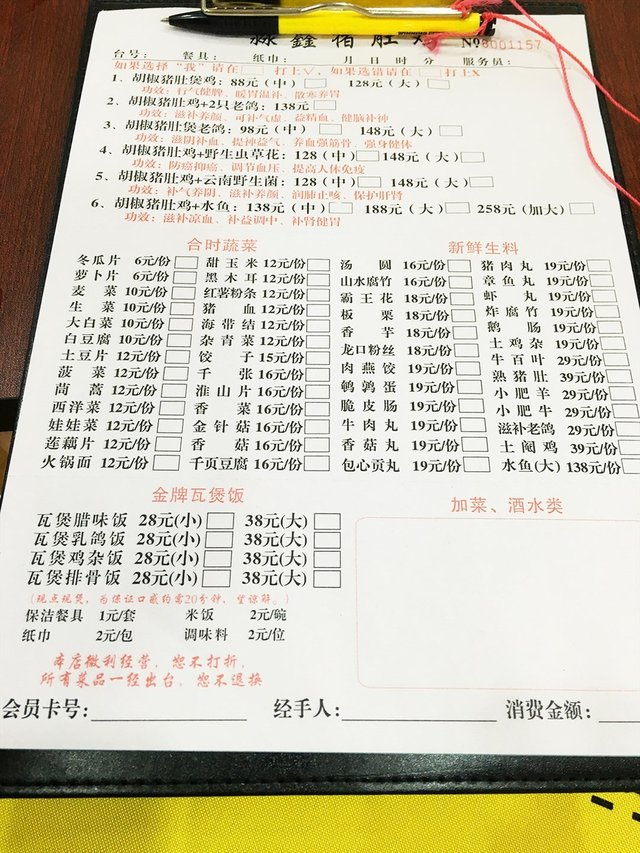 淼鑫猪肚鸡 No 0001157
台号: 餐具: 纸巾: 月 日 时 分 服务员:
如果选择“我”请在□打上√,如果选错请在□打上X
1、胡椒猪肚煲鸡: 88元(中)□ 128元(大)□
功效: 行气健脾、暖胃温补、散寒养胃
2、胡椒猪肚鸡+2只老鸽: 138元□
功效: 滋补养颜、可补气虚、益精血、健脑补神
3、胡椒猪肚煲老鸽: 98元(中)□ 148元(大)□
功效: 滋阴补血、提神益气、养血强筋骨、强身健体
4、胡椒猪肚鸡+野生虫草花: 128(中)□148元(大)□
功效: 防癌抑癌、调节血压、提高人体免疫
5、胡椒猪肚鸡+云南野生菌: 128(中)□ 148元(大)□
功效: 补气养阴、滋补养颜、润肺止咳、保护肝肾
6、胡椒猪肚鸡+水鱼: 138元(中)□ 188元(大)□ 258元(加大)□
功效: 滋补凉血、补益调中、补肾健胃
合时蔬菜
冬瓜片 6元/份□ 甜玉米 12元/份□
萝卜片 6元/份□ 黑木耳 12元/份□
麦菜 10元/份□ 红薯粉条 12元/份□
生菜 10元/份□ 猪血 12元/份□
大白菜 10元/份□ 海带结 12元/份□
白豆腐 10元/份□ 杂青菜 12元/份□
土豆片 12元/份□ 饺子 15元/份□
菠菜 12元/份□ 千张 16元/份□
茼蒿 12元/份□ 淮山片 16元/份□
西洋菜 12元/份□ 香菜 16元/份□
娃娃菜 12元/份□ 金针菇 16元/份□
莲藕片 12元/份□ 香菇 16元/份□
火锅面 12元/份□ 千页豆腐 16元/份□
新鲜生料
汤圆 16元/份□ 猪肉丸 19元/份□
山水腐竹 16元/份□ 章鱼丸 19元/份□
霸王花 18元/份□ 虾丸 19元/份□
板栗 18元/份□ 炸腐竹 19元/份□
香芋 18元/份□ 鹅肠 19元/份□
龙口粉丝 18元/份□ 土鸡杂 19元/份□
肉燕饺 19元/份□ 牛百叶 29元/份□
鹌鹑蛋 19元/份□ 熟猪肚 39元/份□
脆皮肠 19元/份□ 小肥羊 29元/份□
牛肉丸 19元/份□ 小肥牛 29元/份□
香菇丸 19元/份□ 滋补老鸽 29元/份□
包心贡丸 19元/份□ 土阉鸡 39元/份□
水鱼(大) 138元/份□
金牌瓦煲饭
瓦煲腊味饭 28元(小)□ 38元(大)□
瓦煲乳鸽饭 28元(小)□ 38元(大)□
瓦煲鸡杂饭 28元(小)□ 38元(大)□
瓦煲排骨饭 28元(小)□ 38元(大)□
(现点现煲,为保证口感约需20分钟,望谅解。)
保洁餐具 1元/套 米饭 2元/碗
纸巾 2元/包 调味料 2元/位
本店微利经营,恕不打折,
所有菜品一经出台,恕不退换
加菜、酒水类
会员卡号: 经手人: 消费金额: